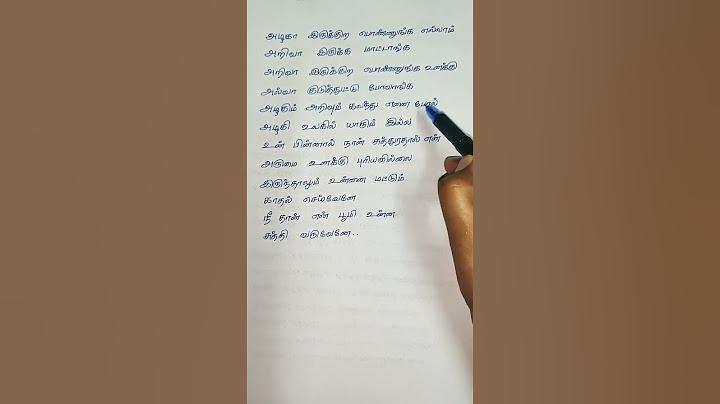 அழகா இருக்கிற பொண்ணுங்க எல்லாம்
அறிவா இருக்க மாட்டாங்க
அறிவா இருக்கிற பொண்ணுங்க உனக்கு
அல்வா குடுத்துட்டு போவாங்க
அழகும் அறிவும் கலந்து எனை போல்
அழகி உலகில் யாரும் இல்ல
உன் பின்னால் நான் சுத்துரதால் என்
அருமை உனக்கு புரியவில்லை
இருந்தாலும் உன்னை மட்டும்
காதல் செய்வேனே
நீ தான் என் பூமி உன்ன
சுத்தி வருவேனே..